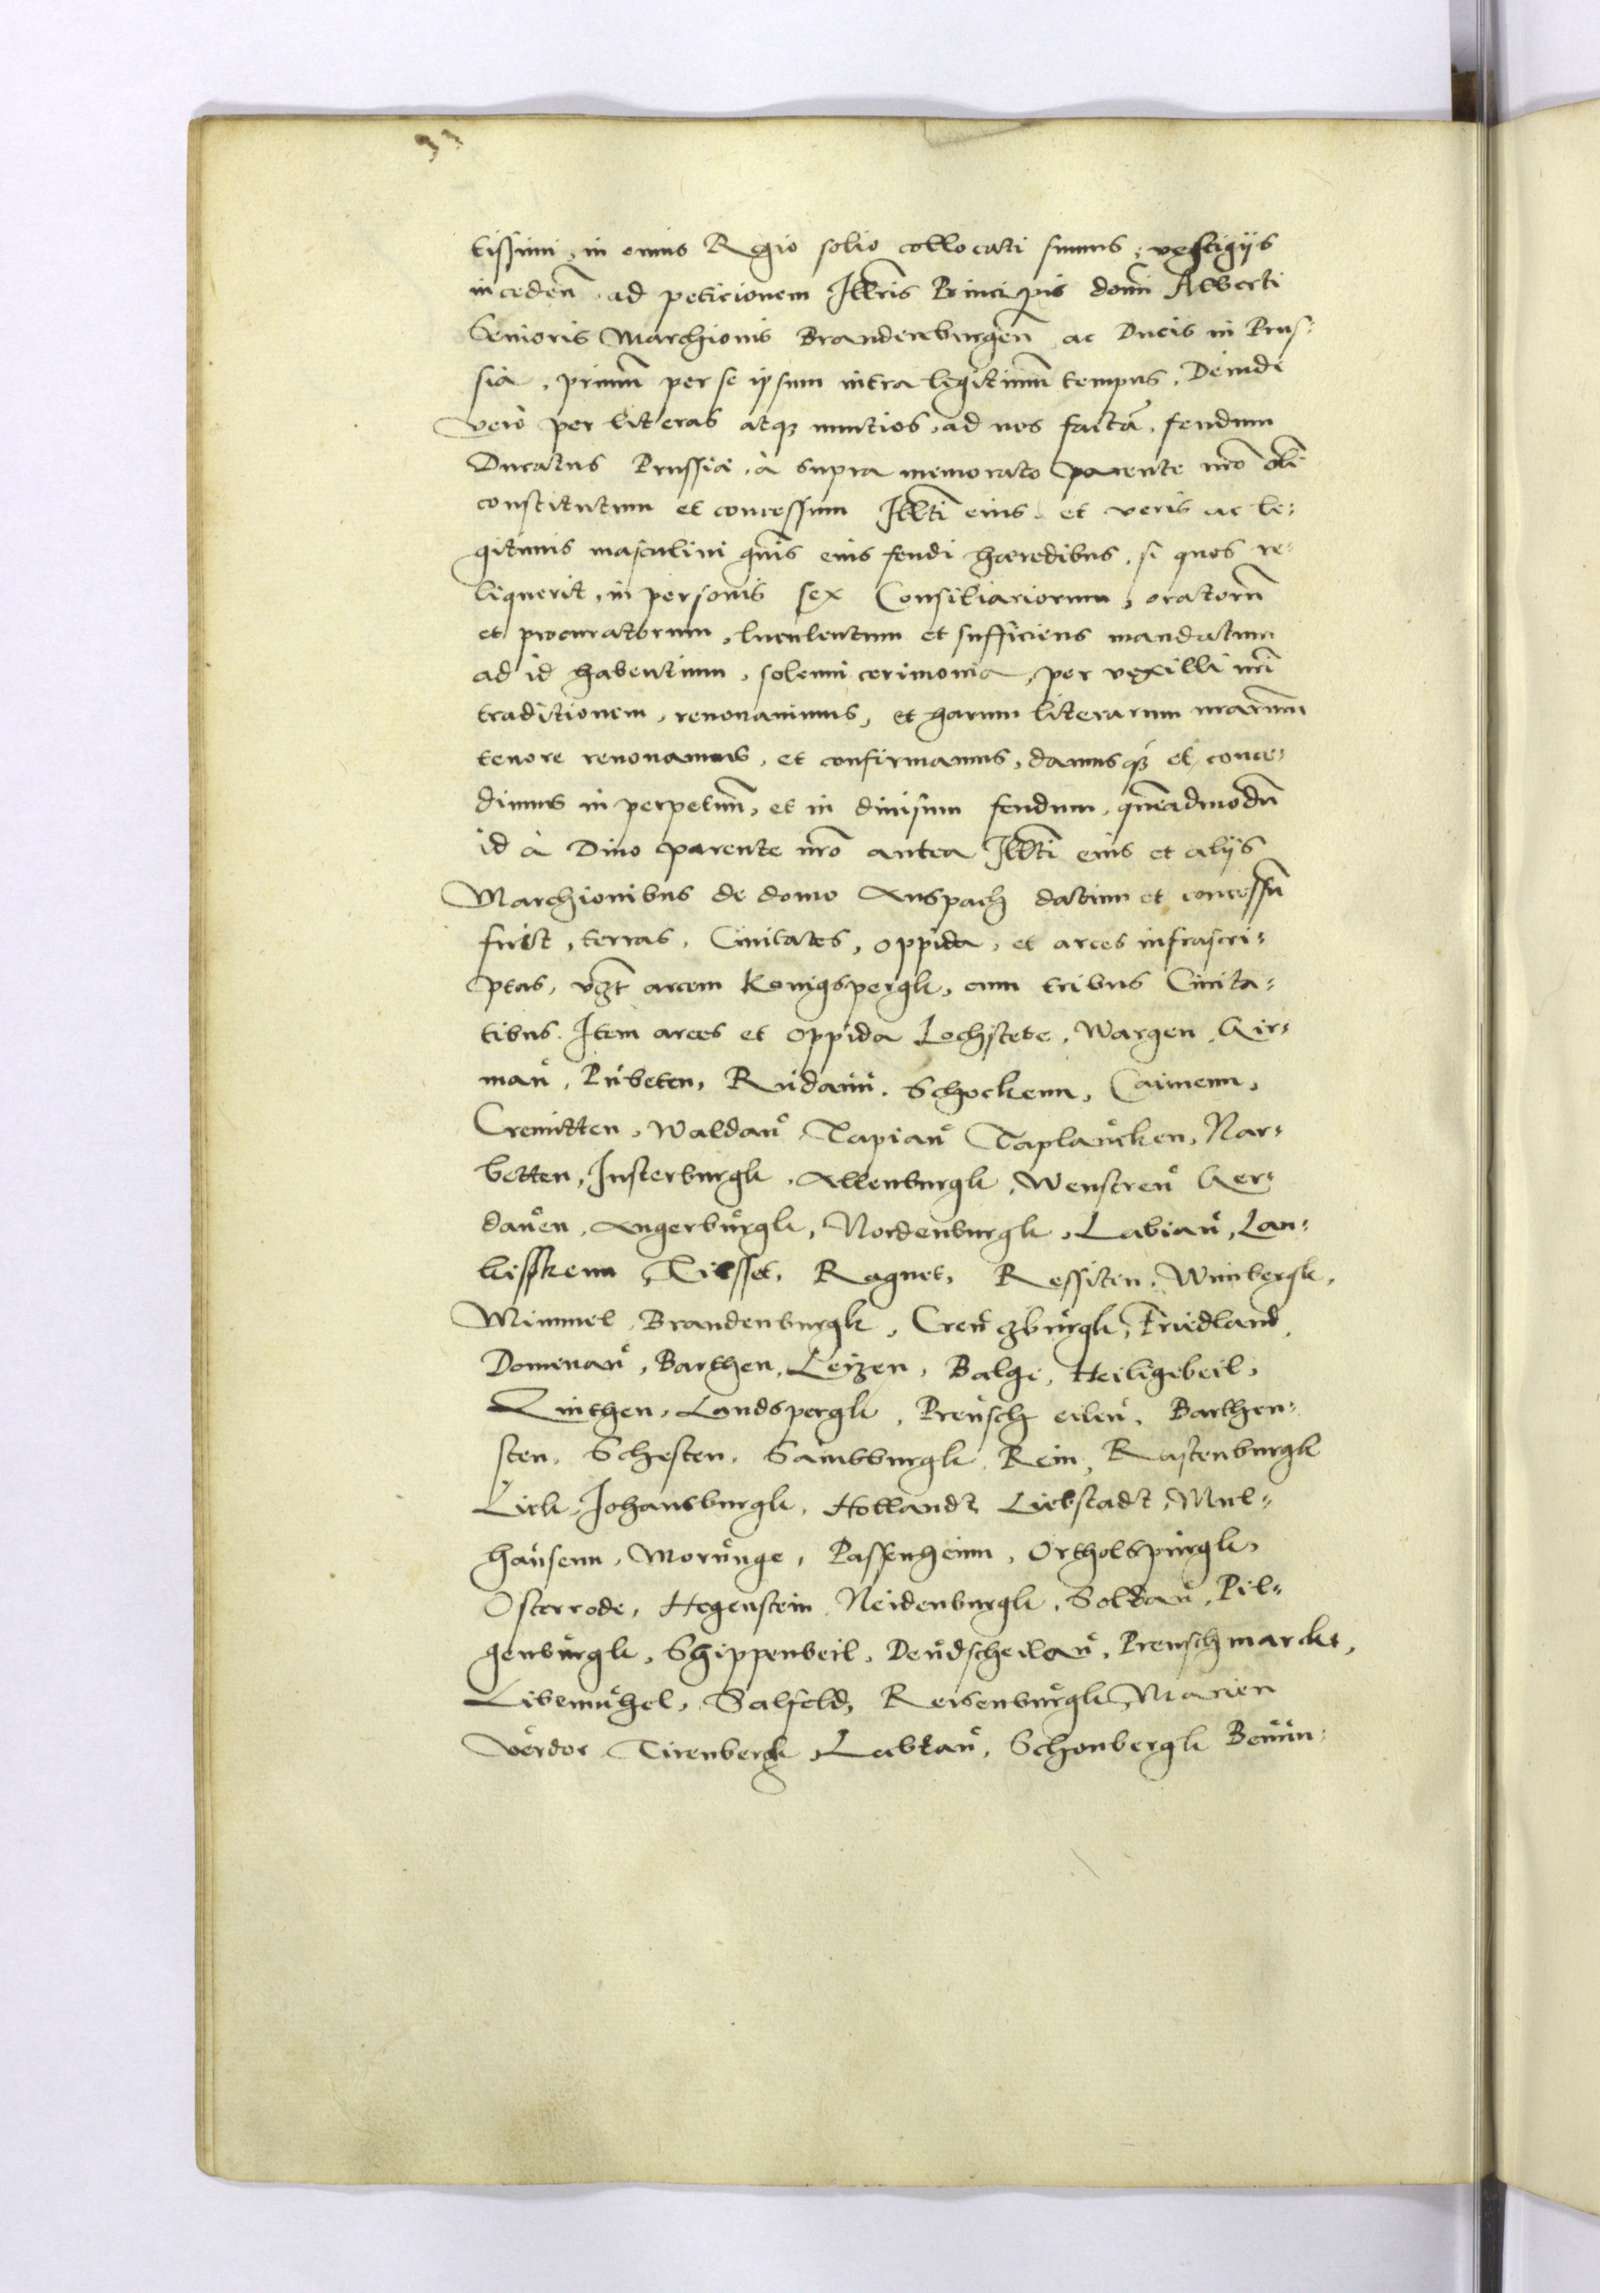 tissimi, in cuius Regio solio collocati sumus, vestigijs
inceden̄. ad peticionem Illris Principis domi Alberti
Senioris Marchionis Brandenburgen̄ ac Ducis in Prus⸗
sia, primū per se ipsum intra legitimū tempus, Deinde
vero per literas atq3 nuntios, ad nos factā, feudum
Ducatus Prussiæ, à supra memorato parente nrō oli
constitutum et concessum Illti eius, et veris ac le⸗
gitimis masculini gn̄is eius feudi hæredibus, si quos re⸗
liquerit, in personis sex Consiliariorum, oratorū
et procuratorum, luculentum et sufficiens mandatum
ad id habentium, solenni cerimonia, per vexilli nrī
traditionem, renovavimus, et harum literarum nrarum
tenore renovamus, et confirmamus, damusq3 et conce⸗
dimus in perpetuū, et in divisum feudum, quēadmodū
id à Divo parente nrō antea Illti eius et alijs
Marchionibus de domo Anspach datum et concessū
fuit, terras, Civitates, oppida, et arces infrascri⸗
ptas, vzt arcem Konigspergk, cum tribus Civita⸗
tibus. Item arces et oppida Lochstete, Wargen, Gir⸗
maů, Pubeten, Rudaů, Schockenn, Caimenn,
Cremitten, Waldaů, Tapiaů Taplaůcken, Nar⸗
betten, Insterburgk, Allenburgk, Wenstreů Ger⸗
daůen, Angerbůrgk, Nordenburgk, Labiaů, Lau⸗
kisskenn, Tilsset, Ragnet, Rossiten, Winbergk,
Mimmel, Brandenburgk, Creůczbůrgk, Friedland,
Domnaů, Barthen, Leizen, Balge, Heiligebeil,
Zinthen, Landspergk, Preůsch eileů, Barthen⸗
sten, Schesten, Seinbburgk, Rein, Rastenburgk
Lick, Johansburgk, Hollandt Liebstadt, Mul⸗
haůsenn, Morůnge, Passenheim, Ortholspůrgk,
Osterrode, Hogenstein Neidenburgk, Soldaů, Pil⸗
genbůrgk, Schippenbeil, Deůdscheilaů, Preusch marckt,
Libemůhel, Salfeld, Reisenbůrgk, Marien
Wůrder Tirenbergk, Labtaů, Schonbergk